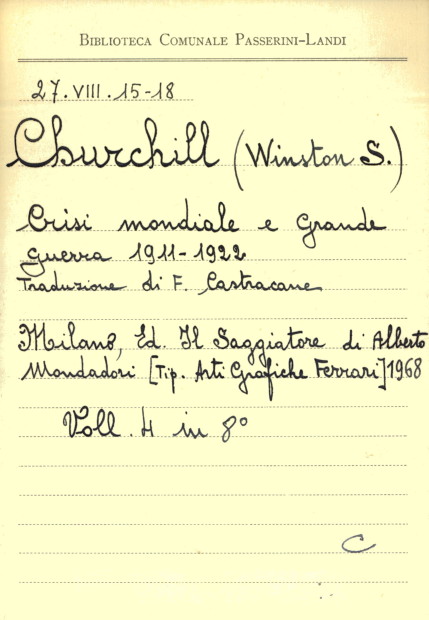 BIBLIOTECA COMUNALE PASSERINI-LANDI
27.VIII.15-18
Churchill (Winston S.)
Crisi mondiale e Grande
guerra 1911-1922
Traduzione di F. Castracane
Milano, Ed. Il Saggiatore di Alberto
Mondadori [Tip. Arti Grafiche Ferrari] 1968
Voll. 4 in 8°
C